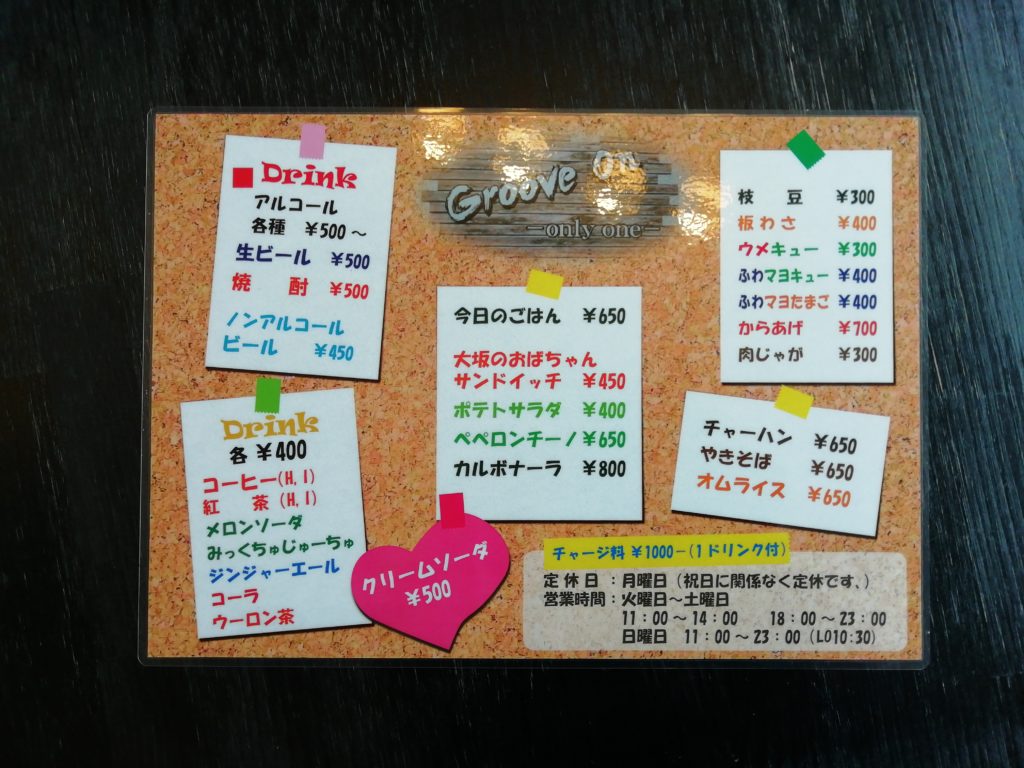 Groove On
only one
Drink
アルコール
各種 ¥500～
生ビール ¥500
焼 酎 ¥500
ノンアルコール
ビール ¥450
Drink
各 ¥400
コーヒー(H, I)
紅 茶 (H, I)
メロンソーダ
みっくちゅじゅーちゅ
ジンジャーエール
コーラ
ウーロン茶
クリームソーダ
¥500
今日のごはん ¥650
大坂のおばちゃん
サンドイッチ ¥450
ポテトサラダ ¥400
ペペロンチーノ ¥650
カルボナーラ ¥800
枝 豆 ¥300
板わさ ¥400
ウメキュー ¥300
ふわマヨキュー ¥400
ふわマヨたまご ¥400
からあげ ¥700
肉じゃが ¥300
チャーハン ¥650
やきそば ¥650
オムライス ¥650
チャージ料 ¥1000-(1ドリンク付)
定休日：月曜日（祝日に関係なく定休です。）
営業時間：火曜日～土曜日
11：00～14：00 18：00～23：00
日曜日 11：00～23：00（LO10:30）